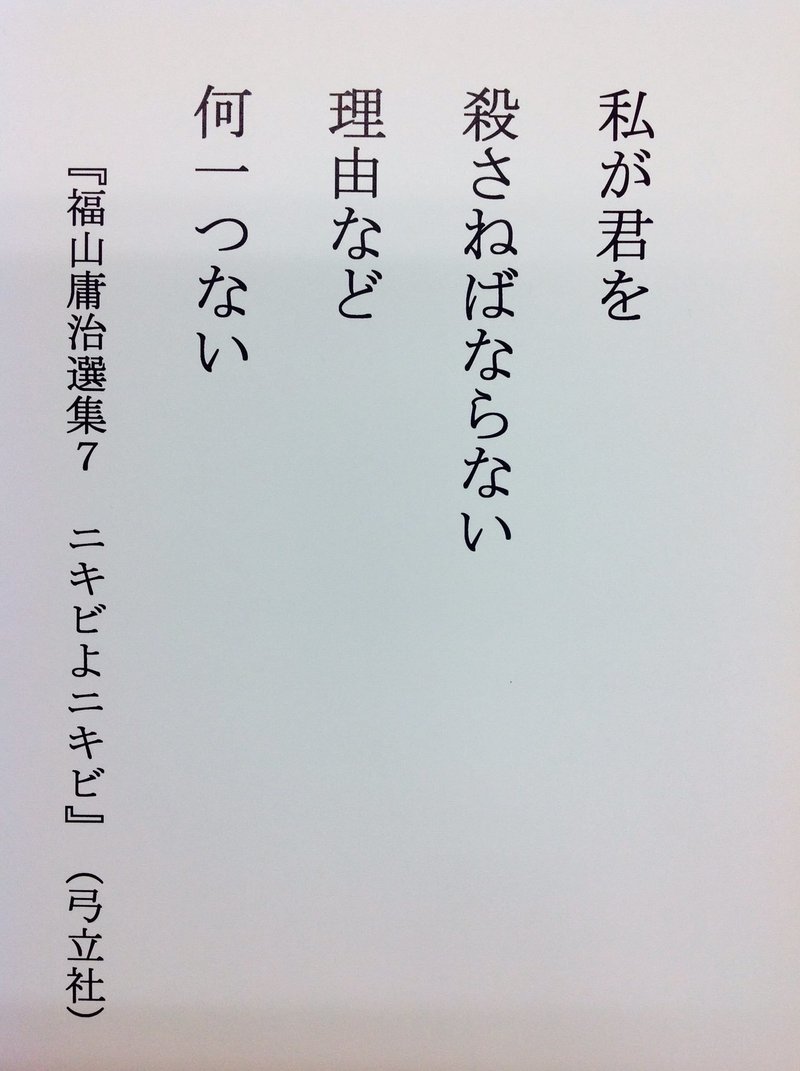 私が君を
殺さねばならない
理由など
何一つない
『福山庸治選集7　ニキビよニキビ』（弓立社）